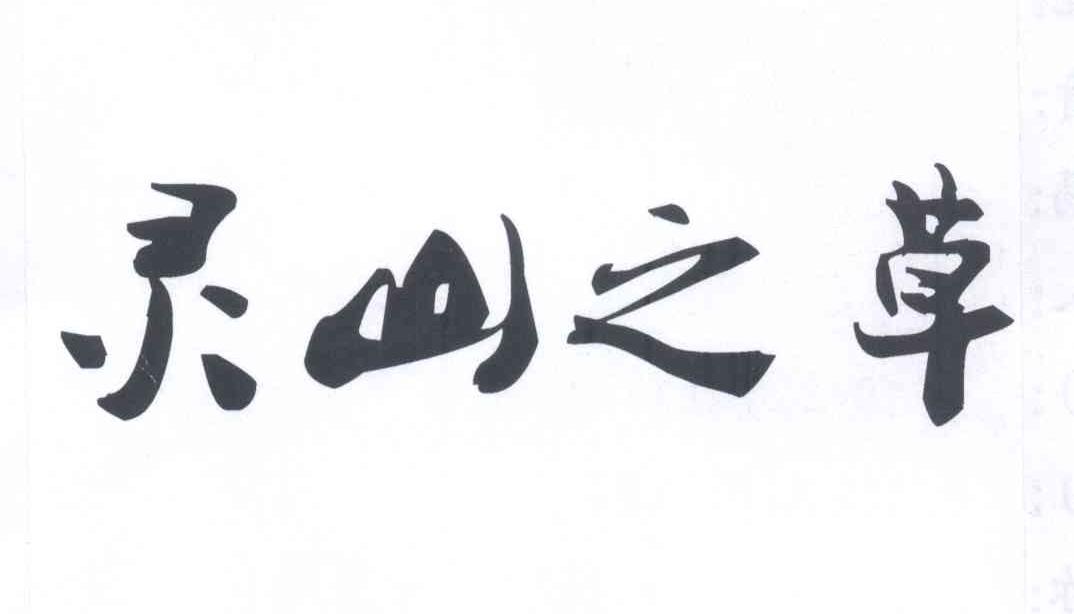 灵山之草